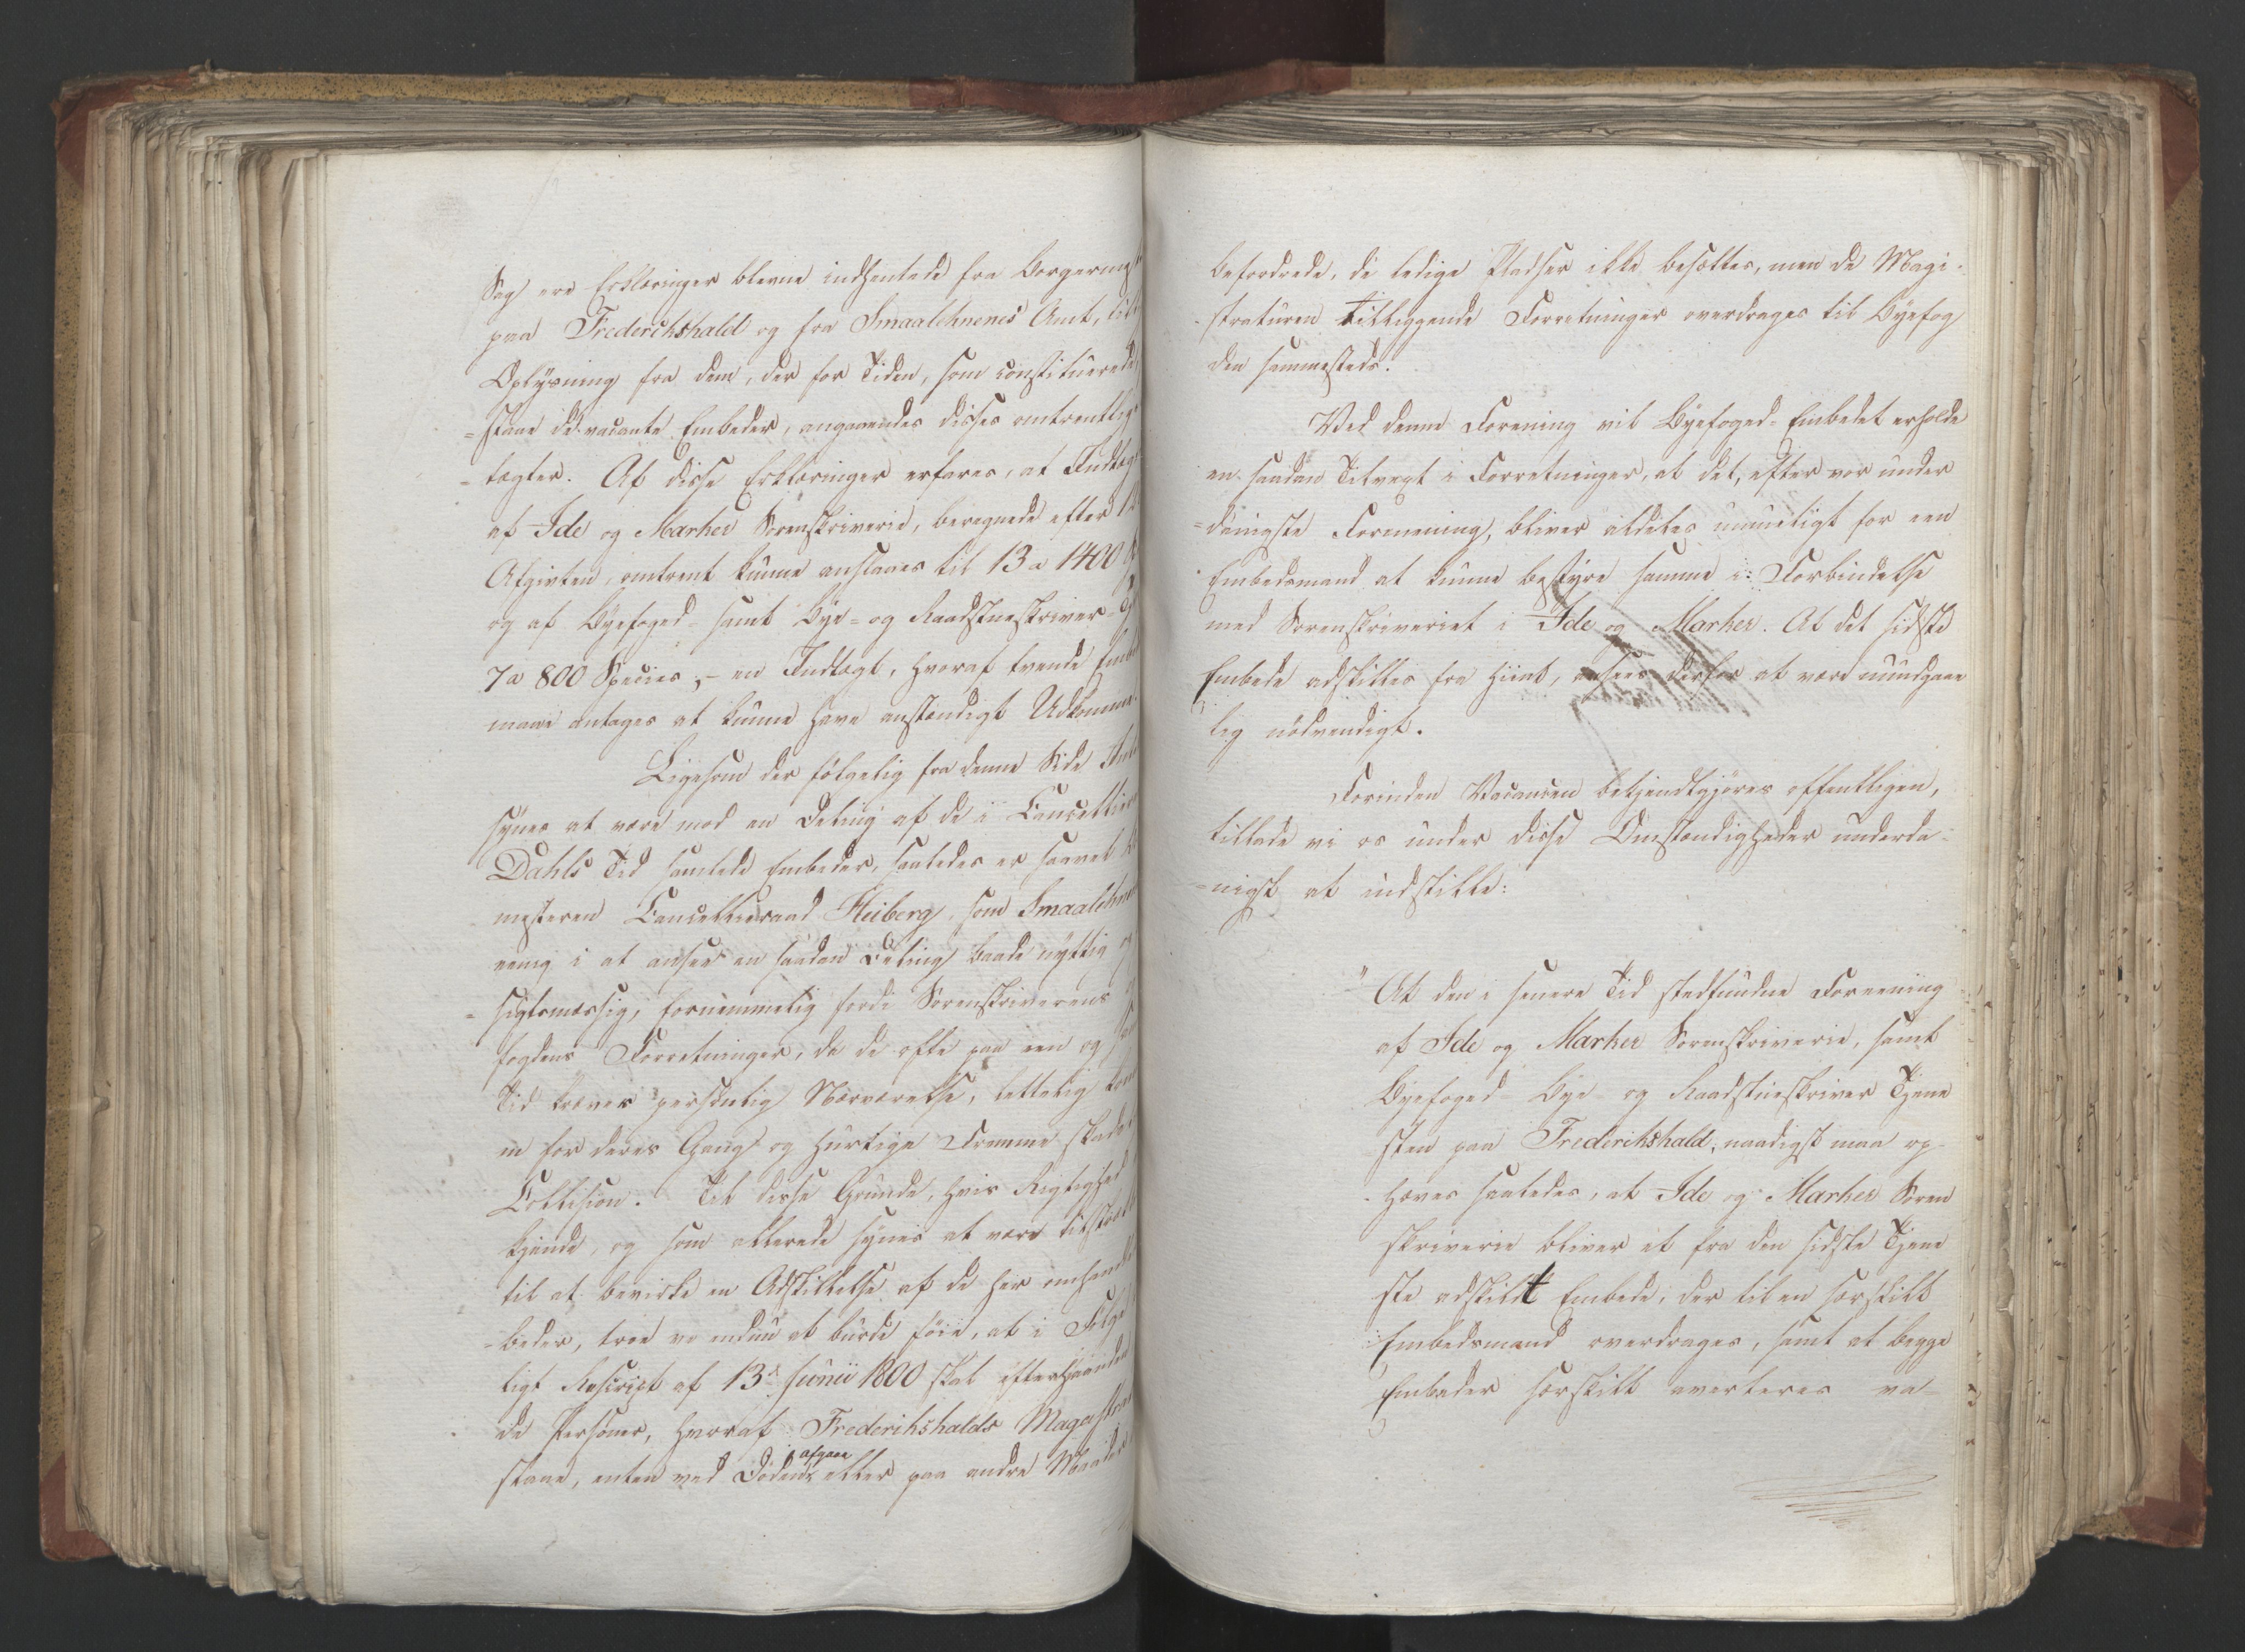 Sag ere Erklæringer blevne indhentede fra Borgermest
paa Friderichshald og fra Smaalehnenes Amt, lib
Oplysning fra dem, der for Tiden, som constituerede,
=staae de vacante Embeder, angaaendes disses omtrentlige
=tægter. Af disse Erklæringer erfares, at Indtægt
af Ide og Marker Sorenskriverie, beregnede efter 12
Afgivten, omtrent kunne anslaaes til 13 a 1400
og af Byefoged- samt Bye- og Raadstueskriver-Tj
7 a 800 Species, - en Indtægt, hvoraf tvende Embe
maae antages at kunne have anstændigt Udkomme.
Ligesom der følgelig fra denne Side Int
synes at være mod en Deling af de i Cancellier
Dahls Tid samlede Embeder, saaledes er saavel
mesteren Cancellieraad Heiberg, som Smaalehne
eenig i at ansee en saadan Deling baade nyttig og
=sigtsmæssig, fornemmelig fordi Sorenskriverens
fogdens Forretninger, da de ofte paa een og sam
Tid kræver personlig Nærværelse, lettelig kom
in for deres Gang og hurtige Fremme skade
Collision. Til disse Grunde, hvis Rigtighed
kjende, og som allerede synes at være tilstræk
til at bevirke en Adskillelse af de her omhand
=beder, troe vi endnu at burde føie, at i Følge
ligt Rescript af 13de Junii 1800 skal efterhaanden
de Personer, hvoraf Frederikshalds Magistrat
staae, enten ved Døden afgaae eller paa andre Maader
befordrede, de ledige Pladser ikke besættes, men de Magi-
straturen tilliggende Forretninger overdrages til Byefog
den sammesteds.
Ved denne Forening vil Byefoged-Embedet erholde
en saadan Tilvext i Forretninger, at det, efter vor under
=danigste Formening, bliver aldeles umueligt for een
Embedsmand at kunne bestyre samme i Forbindelse
med Sorenskriveriet i Ide og Marker. At det sidste
Embede adskilles fra hiint, ansees derfor at være uundgaae
lig nødvendigt.
Forinden Vacancen bekjendtgjøres offentligen,
tillade vi os under disse Omstændigheder underda-
=nigst at indstille:
"At den i senere Tid stedfundne Foreening
af Ide og Marker Sorenskriverie, samt
Byefoged- Bye- og Raadstueskriver Tjene
sten paa Frederikshald, naadigst maa op-
hæves saaledes, at Ide og Marker Soren
skriverie bliver et fra den sidste Tjene
ste adskildt Embede, der til en særskilt
Embedsmand overdrages, samt at begge
Embeder særskilt averteres va-